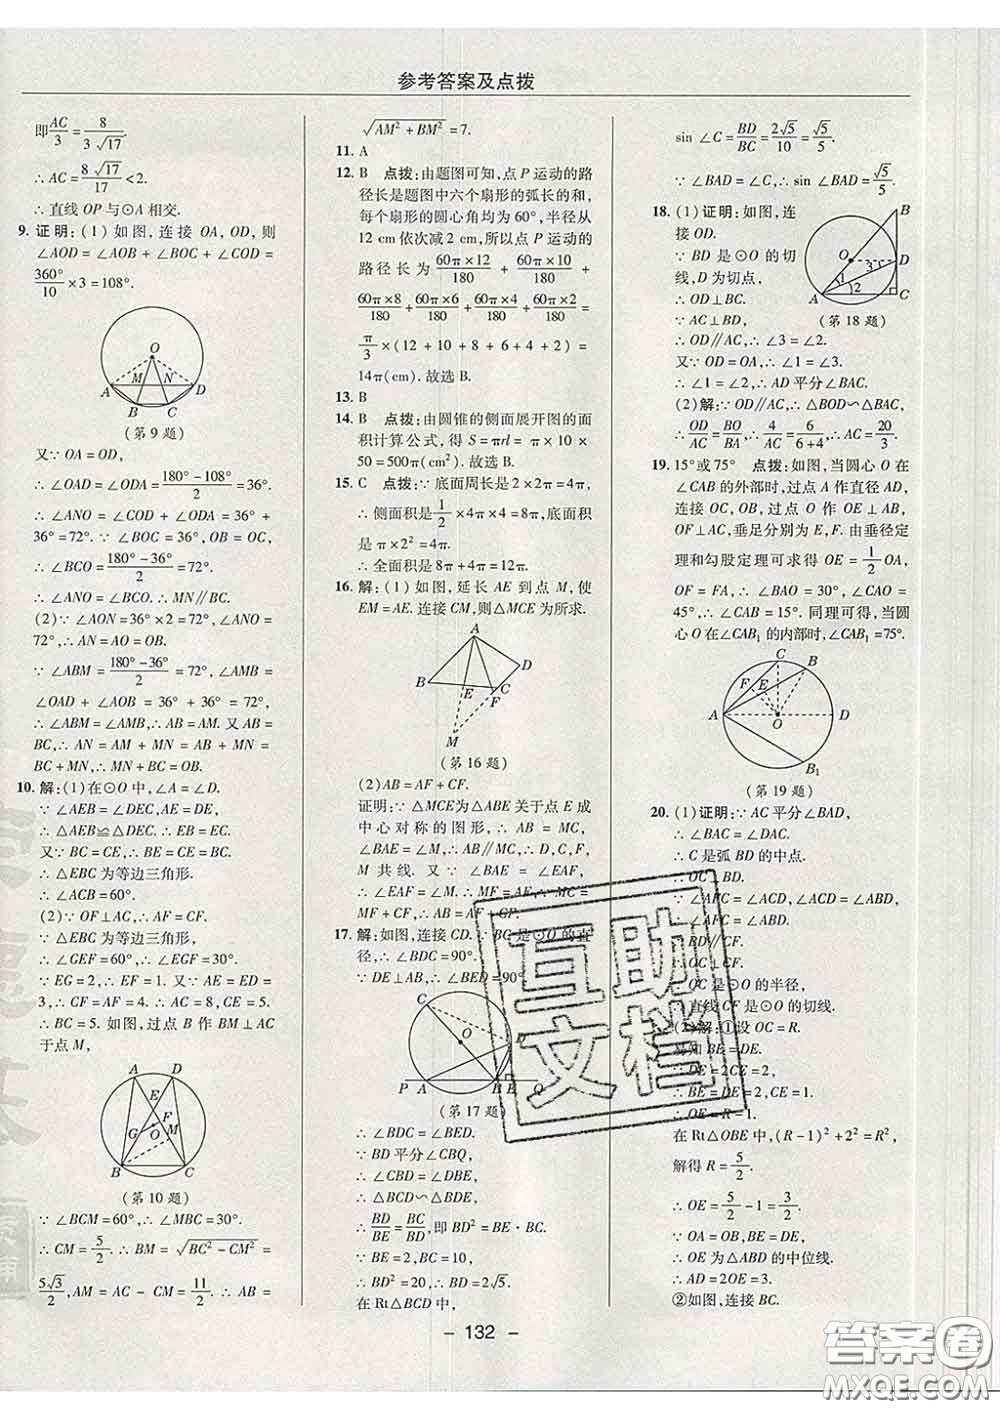 参考答案及点拨
即AC/3=8/(3√17).
∴AC=8√17/17<2.
∴直线OP与⊙A相交.
9. 证明:(1)如图,连接OA,OD,则
∠AOD=∠AOB+∠BOC+∠COD=
360°/10×3=108°.
O
M N
A D
B C
(第9题)
又∵OA=OD,
∴∠OAD=∠ODA=(180°-108°)/2=36°.
∴∠ANO=∠COD+∠ODA=36°+
36°=72°.∵∠BOC=36°,OB=OC,
∴∠BCO=(180°-36°)/2=72°.
∴∠ANO=∠BCO.∴MN∥BC.
(2)∵∠AON=36°×2=72°,∠ANO=
72°,∴AN=AO=OB.
∵∠ABM=(180°-36°)/2=72°,∠AMB=
∠OAD+∠AOB=36°+36°=72°,
∴∠ABM=∠AMB,∴AB=AM.又AB=
BC,∴AN=AM+MN=AB+MN=
BC+MN.
10. 解:(1)在⊙O中,∠A=∠D.
∵∠AEB=∠DEC,AE=DE,
∴△AEB≌△DEC.∴EB=EC.
又∵BC=CE,∴BE=CE=BC.
∴△EBC为等边三角形.
∴∠ACB=60°.
(2)∵OF⊥AC,∴AF=CF.
∵△EBC为等边三角形,
∴∠GEF=60°.∴∠EGF=30°.
∵EG=2,∴EF=1.又∵AE=ED=
3,∴CF=AF=4.∴AC=8,CE=5.
∴BC=5.如图,过点B作BM⊥AC
于点M,
A D
E
F
G O M
B C
(第10题)
∵∠BCM=60°,∴∠MBC=30°.
∴CM=5/2.∴BM=√(BC²-CM²)=
5√3/2,AM=AC-CM=11/2.∴AB=
√(AM²+BM²)=7.
11. A
12. B 点拨:由题图可知,点P运动的路
径长是题图中六个扇形的弧长的和,
每个扇形的圆心角均为60°,半径从
12 cm依次减2 cm,所以点P运动的
路径长为60π×12/180+60π×10/180+
60π×8/180+60π×6/180+60π×4/180+60π×2/180=
π/3×(12+10+8+6+4+2)=
14π(cm).故选B.
13. B
14. B 点拨:由圆锥的侧面展开图的面
积计算公式,得S=πrl=π×10×
50=500π(cm²).故选B.
15. C 点拨:∵底面周长是2×2π=4π,
∴侧面积是1/2×4π×4=8π,底面积
是π×2²=4π.
∴全面积是8π+4π=12π.
16. 解:(1)如图,延长AE到点M,使
EM=AE.连接CM,则△MCE为所求.
A
D
B E F C
M
(第16题)
(2)AB=AF+CF.
证明:∵△MCE与△ABE关于点E成
中心对称的图形,∴AB=MC,
∠BAE=∠M.∴AB∥MC.∴D,C,F,
M共线.又∵∠BAE=∠EAF,
∴∠EAF=∠M.∴MF=AF.∵MC=
MF+CF,∴AB=AF+CF.
17. 解:如图,连接CD.∵BC是⊙O的直
径,∴∠BDC=90°.
∵DE⊥AB,∴∠BED=90°.
C
O
P A B E Q
(第17题)
∴∠BDC=∠BED.
∵BD平分∠CBQ,
∴∠CBD=∠DBE.
∴△BCD∽△BDE,
∴BD/BE=BC/BD,即BD²=BE·BC.
∵BE=2,BC=10,
∴BD²=20,∴BD=2√5.
在Rt△BCD中,
sin∠C=BD/BC=2√5/10=√5/5.
∵∠BAD=∠C,∴sin∠BAD=√5/5.
18. (1)证明:如图,连
接OD.
∵BD是⊙O的切
线,D为切点,
∴OD⊥BC.
∵AC⊥BD,
∴OD∥AC,∴∠3=∠2.
又∵OD=OA,∴∠1=∠3.
∴∠1=∠2,∴AD平分∠BAC.
B
O D
3
1
2
A C
(第18题)
(2)解:∵OD∥AC,∴△BOD∽△BAC,
∴OD/AC=BO/BA,∴4/AC=6/(6+4),∴AC=20/3.
19. 15°或75° 点拨:如图,当圆心O在
∠CAB的外部时,过点A作直径AD,
连接OC,OB,过点O作OE⊥AB,
OF⊥AC,垂足分别为E,F.由垂径定
理和勾股定理可求得OE=1/2OA,
OF=FA,∴∠BAO=30°,∠CAO=
45°,∴∠CAB=15°.同理可得,当圆
心O在∠CAB₁的内部时,∠CAB₁=75°.
C
B
F E
A O D
B₁
(第19题)
20. (1)证明:∵AC平分∠BAD,
∴∠BAC=∠DAC.
∴C是弧BD的中点.
∴OC⊥BD.
∵∠BCF=∠ACD,∠ACD=∠ABD,
∴∠BCF=∠ABD.
∴BD∥CF.∴OC⊥CF.
∵OC是⊙O的半径,
∴直线CF是⊙O的切线.
(2)解:①设OC=R.
易知BE=DE.
∵DE=2CE=2,CE=1.
∴BE=DE=2,CE=1.
∴OE=R-1.
在Rt△OBE中,(R-1)²+2²=R²,
解得R=5/2.
∴OE=5/2-1=3/2.
∵OA=OB,BE=DE,
∴OE为△ABD的中位线.
∴AD=2OE=3.
②如图,连接BC.
- 132 -
互助
文档
答案圈
MXQE.COM